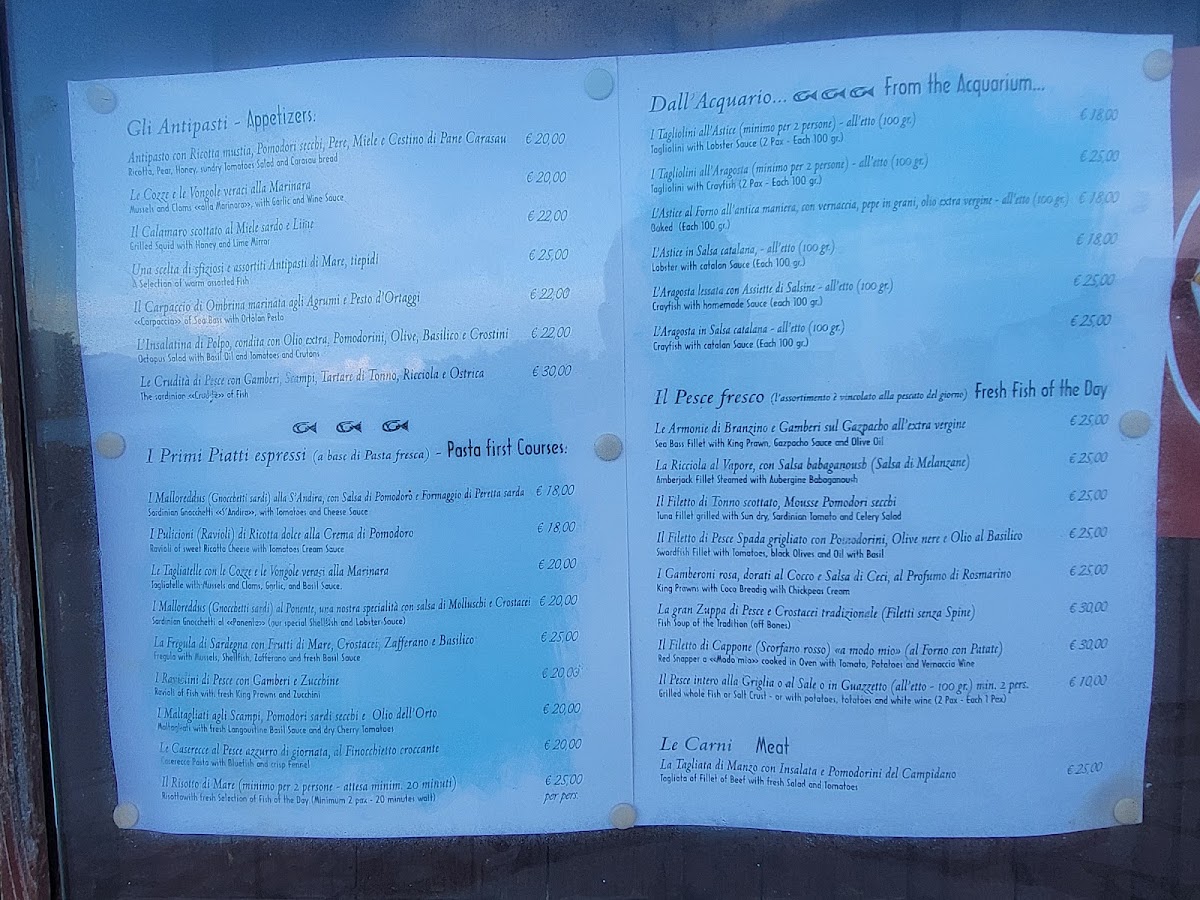 Gli Antipasti - Appetizers:
Antipasto con Ricotta mustia, Pomodori secchi, Pere, Miele e Cestino di Pane Carasau € 20,00
Ricotta, Pear, Honey, sundry Tomatoes Salad and Carasau bread
Le Cozze e le Vongole veraci alla Marinara € 20,00
Mussels and Clams «alla Marinara», with Garlic and Wine Sauce
Il Calamaro scottato al Miele sardo e Lime € 22,00
Grilled Squid with Honey and Lime Mirror
Una scelta di sfiziosi e assortiti Antipasti di Mare, tiepidi € 25,00
A Selection of warm assorted Fish
Il Carpaccio di Ombrina marinata agli Agrumi e Pesto d'Ortaggi € 22,00
«Carpaccio» of Sea Bass with Ortolan Pesto
L'Insalatina di Polpo, condita con Olio extra, Pomodorini, Olive, Basilico e Crostini € 22,00
Octopus Salad with Basil Oil and Tomatoes and Crutons
Le Crudità di Pesce con Gamberi, Scampi, Tartare di Tonno, Ricciola e Ostrica € 30,00
The sardinian «Crudità» of Fish
I Primi Piatti espressi (a base di Pasta fresca) - Pasta first Courses:
I Malloreddus (Gnocchetti sardi) alla S'Andira, con Salsa di Pomodoro e Formaggio di Peretta sarda € 18,00
Sardinian Gnocchetti «S'Andira», with Tomatoes and Cheese Sauce
I Pulicioni (Ravioli) di Ricotta dolce alla Crema di Pomodoro € 18,00
Ravioli of sweet Ricotta Cheese with Tomatoes Cream Sauce
Le Tagliatelle con le Cozze e le Vongole veraci alla Marinara € 20,00
Tagliatelle with Mussels and Clams, Garlic, and Basil Sauce.
I Malloreddus (Gnocchetti sardi) al Ponente, una nostra specialità con salsa di Molluschi e Crostacei € 20,00
Sardinian Gnocchetti al «Ponente» (our special Shellfish and Lobster Sauce)
La Fregula di Sardegna con Frutti di Mare, Crostacei, Zafferano e Basilico € 25,00
Fregula with Mussels, Shellfish, Zafferano and fresh Basil Sauce
I Raviolini di Pesce con Gamberi e Zucchine € 20,00
Ravioli of Fish with fresh King Prawns and Zucchini
I Maltagliati agli Scampi, Pomodori sardi secchi e Olio dell'Orto € 20,00
Maltagliati with fresh Langoustine Basil Sauce and dry Cherry Tomatoes
Le Caserecce al Pesce azzurro di giornata, al Finocchietto croccante € 20,00
Caserecce Pasta with Bluefish and crisp Fennel
Il Risotto di Mare (minimo per 2 persone - attesa minim. 20 minuti) € 25,00
Risottowith fresh Selection of Fish of the Day (Minimum 2 pax - 20 minutes wait) per pers.
Dall'Acquario... From the Acquarium...
I Tagliolini all'Astice (minimo per 2 persone) - all'etto (100 gr.) € 18,00
Tagliolini with Lobster Sauce (2 Pax - Each 100 gr.)
I Tagliolini all'Aragosta (minimo per 2 persone) - all'etto (100 gr.) € 25,00
Tagliolini with Crayfish (2 Pax - Each 100 gr.)
L'Astice al Forno all'antica maniera, con vernaccia, pepe in grani, olio extra vergine - all'etto (100 gr.) € 18,00
Baked (Each 100 gr.)
L'Astice in Salsa catalana, - all'etto (100 gr.) € 18,00
Lobster with catalan Sauce (Each 100 gr.)
L'Aragosta lessata con Assiette di Salsine - all'etto (100 gr.) € 25,00
Crayfish with homemade Sauce (each 100 gr.)
L'Aragosta in Salsa catalana - all'etto (100 gr.) € 25,00
Crayfish with catalan Sauce (Each 100 gr.)
Il Pesce fresco (l'assortimento è vincolato alla pescato del giorno) Fresh Fish of the Day
Le Armonie di Branzino e Gamberi sul Gazpacho all'extra vergine € 25,00
Sea Bass Fillet with King Prawn, Gazpacho Sauce and Olive Oil
La Ricciola al Vapore, con Salsa babaganoush (Salsa di Melanzane) € 25,00
Amberjack Fillet Steamed with Aubergine Babaganoush
Il Filetto di Tonno scottato, Mousse Pomodori secchi € 25,00
Tuna Fillet grilled with Sun dry, Sardinian Tomato and Celery Salad
Il Filetto di Pesce Spada grigliato con Pomodorini, Olive nere e Olio al Basilico € 25,00
Swordfish Fillet with Tomatoes, black Olives and Oil with Basil
I Gamberoni rosa, dorati al Cocco e Salsa di Ceci, al Profumo di Rosmarino € 25,00
King Prawns with Coco Breadig with Chickpeas Cream
La gran Zuppa di Pesce e Crostacei tradizionale (Filetti senza Spine) € 30,00
Fish Soup of the Tradition (off Bones)
Il Filetto di Cappone (Scorfano rosso) «a modo mio» (al Forno con Patate) € 30,00
Red Snapper a «Modo mio» cooked in Oven with Tomato, Potatoes and Vernaccia Wine
Il Pesce intero alla Griglia o al Sale o in Guazzetto (all'etto - 100 gr.) min. 2 pers. € 10,00
Grilled whole Fish or Salt Crust - or with potatoes, totatoes and white wine (2 Pax - Each 1 Pax)
Le Carni Meat
La Tagliata di Manzo con Insalata e Pomodorini del Campidano € 25,00
Tagliata of Fillet of Beef with fresh Salad and Tomatoes